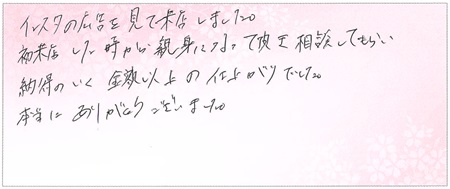 インスタの広告を見て来店しました。
初来店した時から親身になって頂き相談してもらい
納得のいく金額以上の仕上がりでした。
本当にありがとうございました。